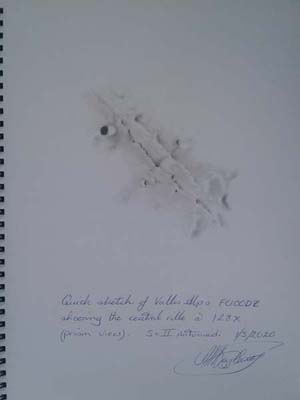 Quick sketch of Vallis Alps FC100DZ
showing the central rille @ 128x
(prism view). S=II Antoniadi 1/5/2020